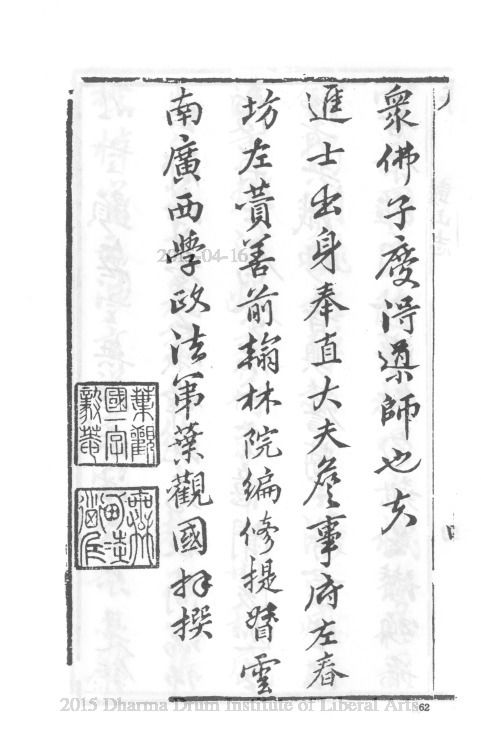 衆佛子慶得導師也夫
進士出身奉直大夫詹事府左春
坊左贊善前翰林院編修提督雲
南廣西學政法弟葉觀國拜撰
葉觀國一字毅菴
2015 Dharma Drum Institute of Liberal Arts
62